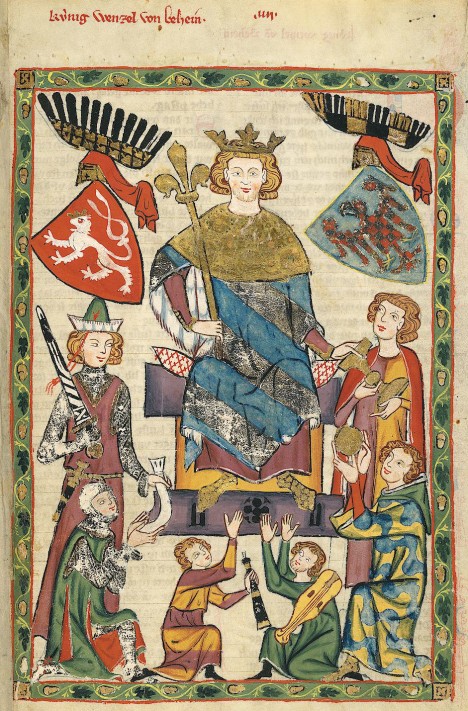 kv́nig wenzel von behein. .iiii.